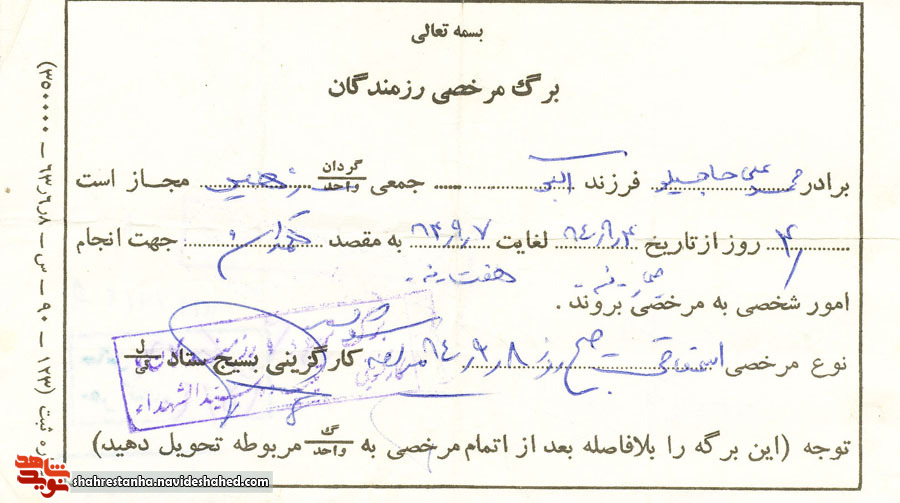 بسمه تعالی
برگ مرخصی رزمندگان
برادر محمد علی حاجیلو فرزند اکبر جمعی گردان/واحد زهیر مجاز است
۴ روز از تاریخ ۶۴٫۹٫۴ لغایت ۶۴٫۹٫۷ به مقصد تهران جهت انجام
امور شخصی به مرخصی بروند .
نوع مرخصی استحقاقی صبح روز ۶۴٫۹٫۸ کارگزینی بسیج ستاد ل/ی
سیدالشهداء
توجه (این برگه را بلافاصله بعد از اتمام مرخصی به گ/واحد مربوطه تحویل دهید)
ره ثبت (۱۲۳ — ۹۰ — س — ۶۳٫۶٫۸ — ۳۵۰۰۰۰)
نوید شاهد
shahrestanha.navideshahed.com